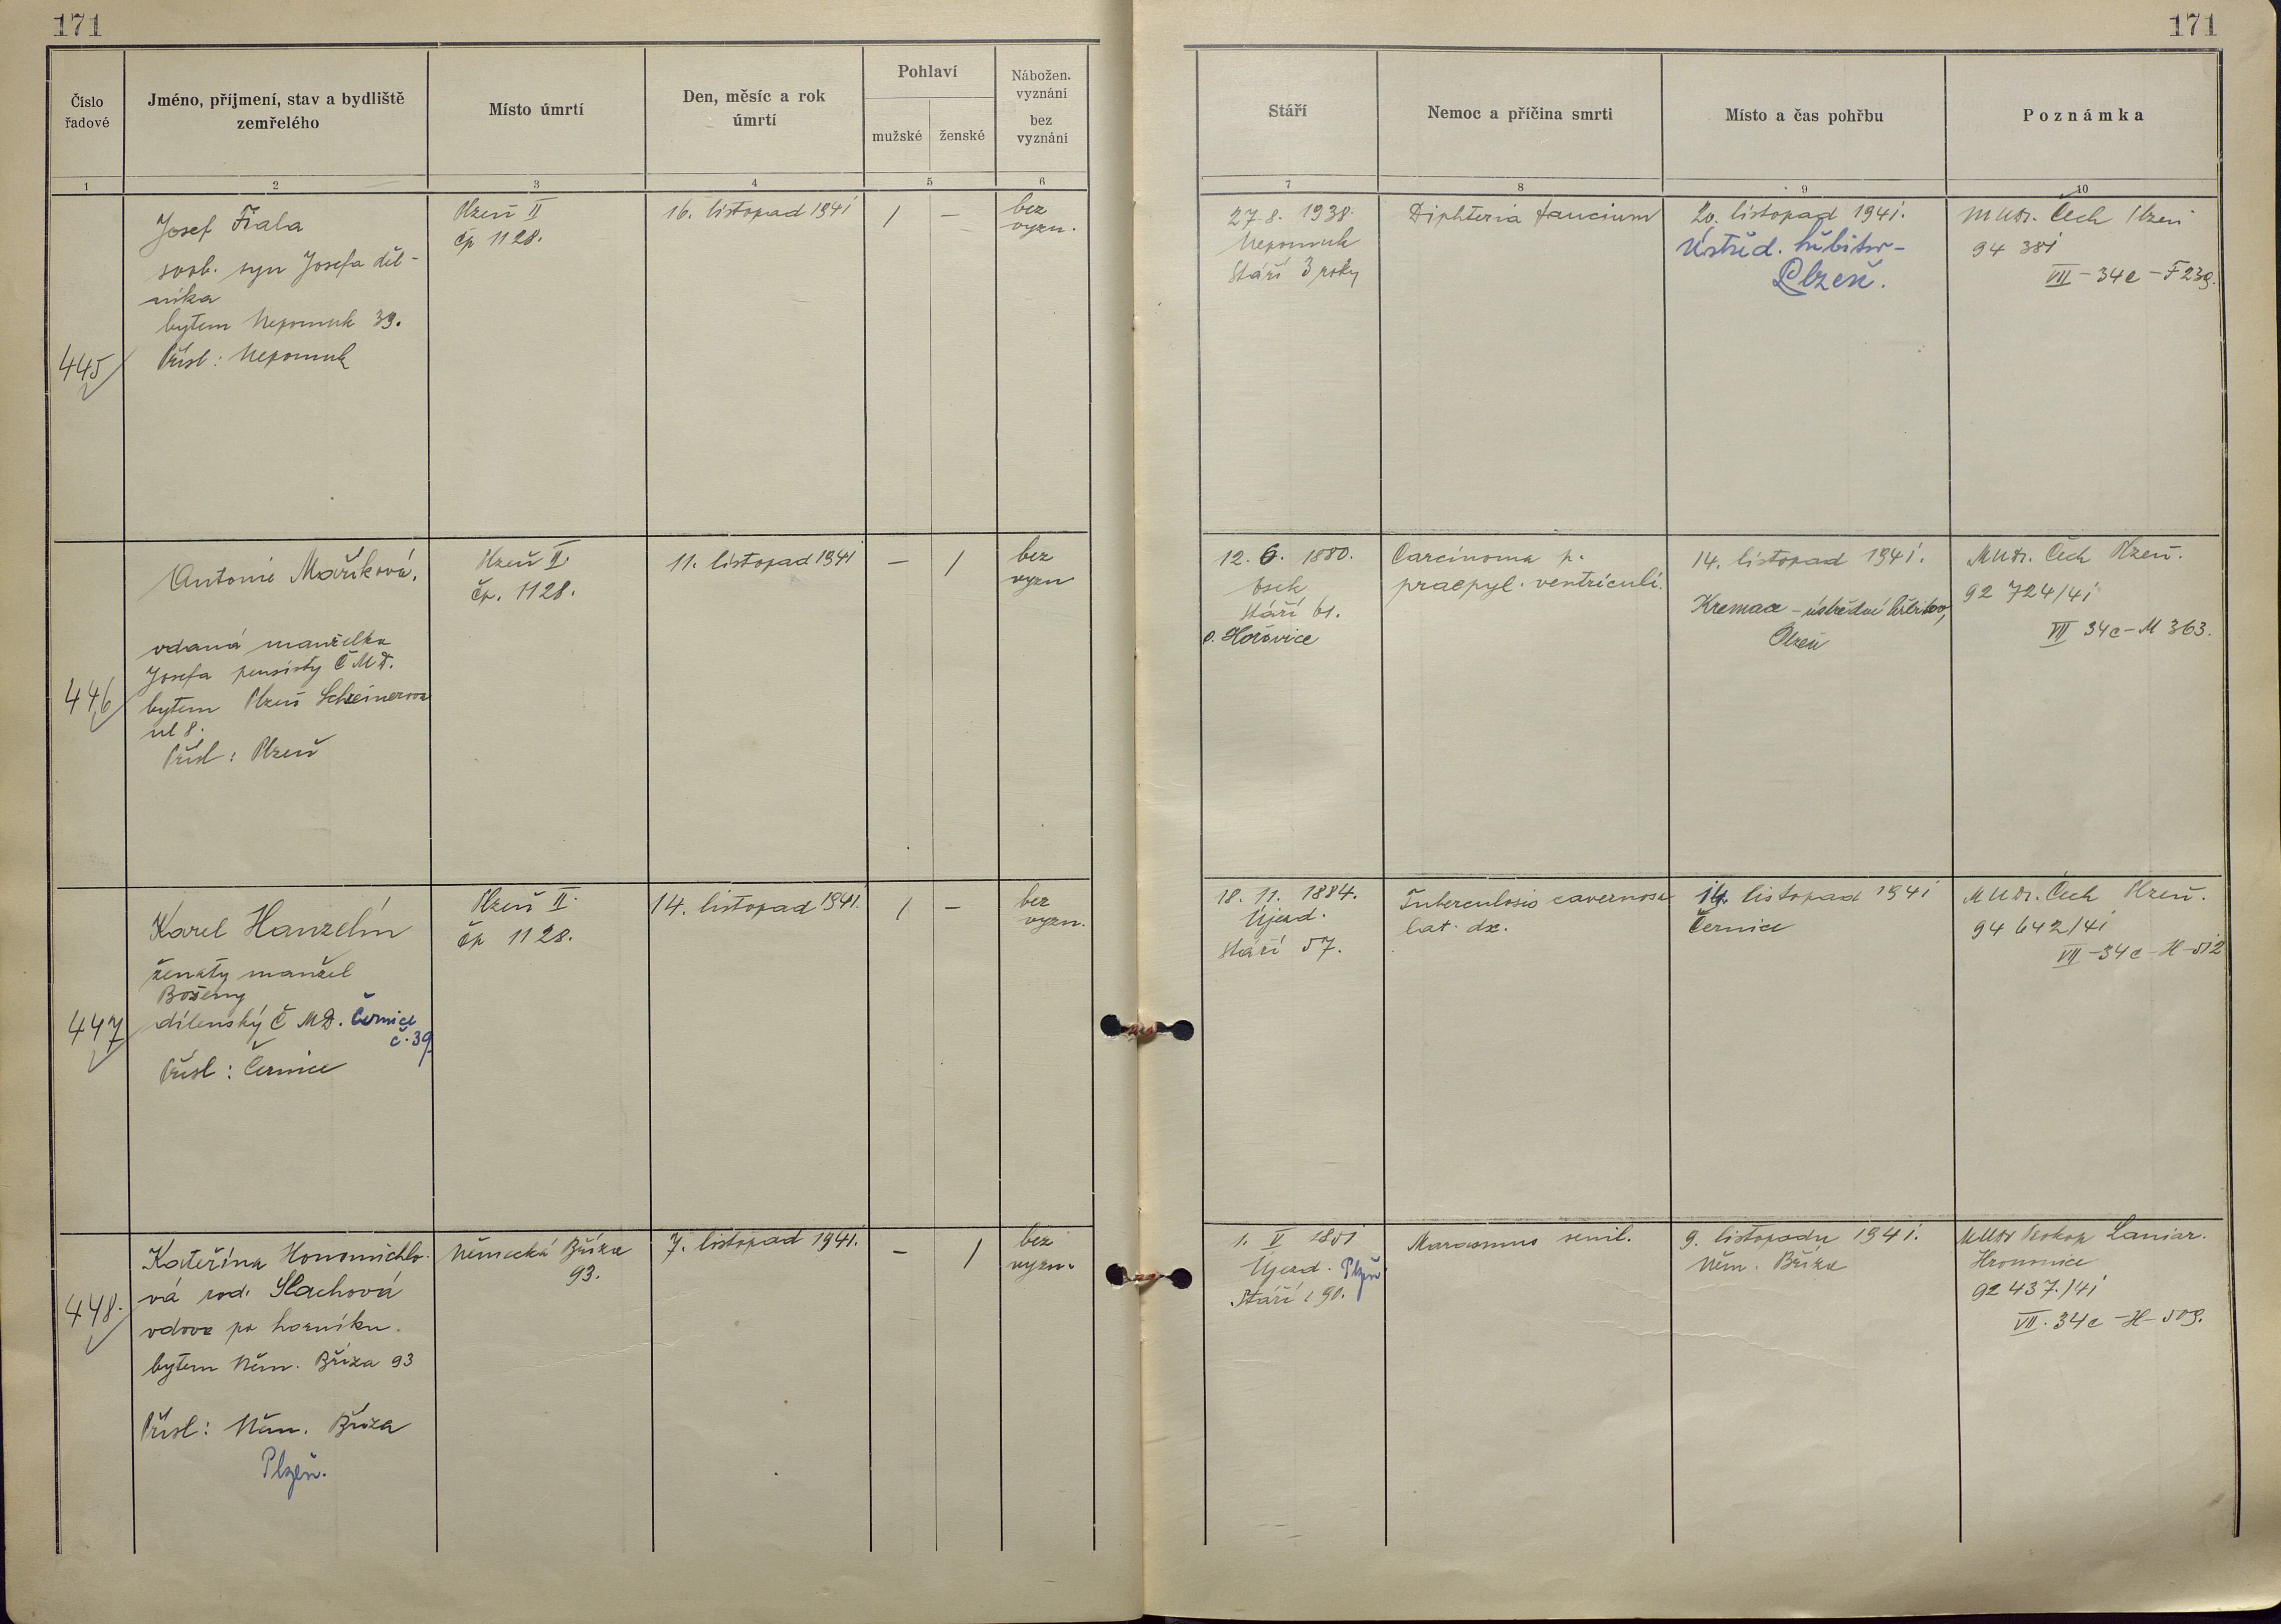 171
171
Číslo
řadové
Jméno, příjmení, stav a bydliště
zemřelého
Místo úmrtí
Den, měsíc a rok
úmrtí
Pohlaví
mužské
ženské
Nábožen.
vyznání
bez
vyznání
Stáří
Nemoc a příčina smrti
Místo a čas pohřbu
Poznámka
1
2
3
4
5
6
7
8
9
10
445
Josef Fiala
svob. syn Josefa děl-
níka
bytem Nepomuk 39.
Přísl: Nepomuk
Plzeň II
čp 1128.
16. listopad 1941
1
—
bez
vyzn.
27. 8. 1938.
Nepomuk
Stáří 3 roky
Diphteria faucium
20. listopad 1941.
Ústřed. hřbitov-
Plzeň.
MUDr. Čech Plzeň
94 381
VII - 34c - F 239.
446
Antonie Maříková.
vdaná manželka
Josefa pensisty ČMD.
bytem Plzeň Scheinerova
ul 8.
Přísl: Plzeň
Plzeň II.
Čp. 1128.
11. listopad 1941
—
1
bez
vyzn
12. 6. 1880.
Osek
Stáří 61.
o. Hořovice
Carcinoma p.
praepyl. ventriculi.
14. listopad 1941.
Kremace - ústřední hřbitov,
Plzeň
MUDr. Čech Plzeň.
92 724/41
VII 34c - M 363.
447
Karel Hanzelín
ženatý manžel
Boženy
dílenský ČMD. Černice
č. 39
Přísl: Černice
Plzeň II.
čp 1128.
14. listopad 1941.
1
—
bez
vyzn.
18. 11. 1884.
Újezd.
Stáří 57.
Tuberculosis cavernosa
lat. dx.
14. listopad 1941
Černice
MUDr. Čech Plzeň.
94 642/41
VII - 34c - H - 512
448.
Kateřina Honomichlo-
vá rod. Šlachová
vdova po horníku.
bytem Něm. Bříza 93
Přísl: Něm. Bříza
Plzeň.
Německá Bříza
93.
7. listopad 1941.
—
1
bez
vyzn.
1. V 1851
Újezd. Plzeň
Stáří: 90.
Marasmus senil.
9. listopadu 1941.
Něm. Bříza
MUDr Prokop
Hromnice
92 437./41
VII. 34c - H - 509.